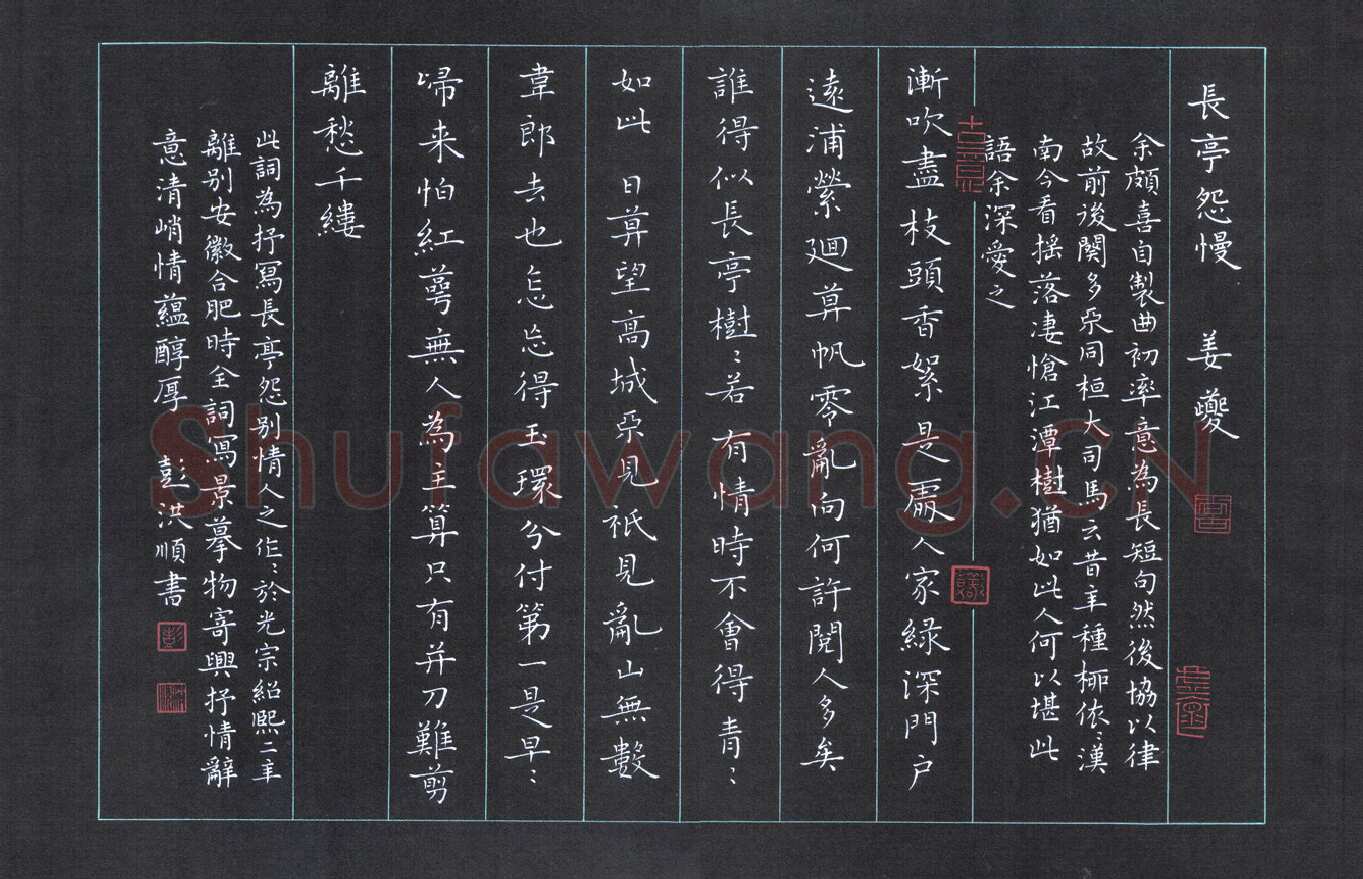 長亭怨慢　姜夔
余頗喜自製曲初率意為長短句然後協以律
故前後闋多不同桓大司馬云昔年種柳依〻漢
南今看搖落淒愴江潭樹猶如此人何以堪此
語余深愛之
漸吹盡枝頭香絮是處人家綠深門户
遠浦縈廻暮帆零亂向何許閱人多矣
誰得似長亭樹〻若有情時不會得青〻
如此日暮望高城不見祇見亂山無數
韋郎去也怎忘得玉環分付第一是早〻
歸来怕紅萼無人為主算只有并刀難剪
離愁千縷
此詞為抒寫長亭怨别情人之作〻於光宗紹熙二年
離别安徽合肥時全詞寫景摹物寄興抒情辭
意清峭情蘊醇厚　彭洪順書
Shufawang.CN